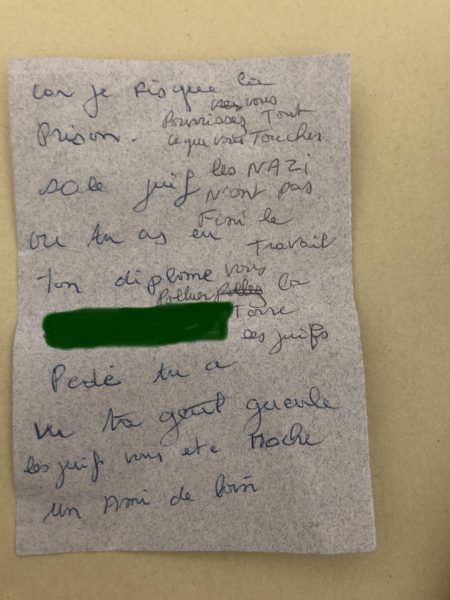 car je risque la
Prison.
sale juif
ou tu as eu
ton diplome
Pédé tu a
vu ta gueule
les juifs vous ete moche
un Ami de loin
vous
Pourrissez Tout
ce que vous Touchez
les NAZI
N'ont pas
Fini le
Travail
vous
Polluer la
Terre
les juifs